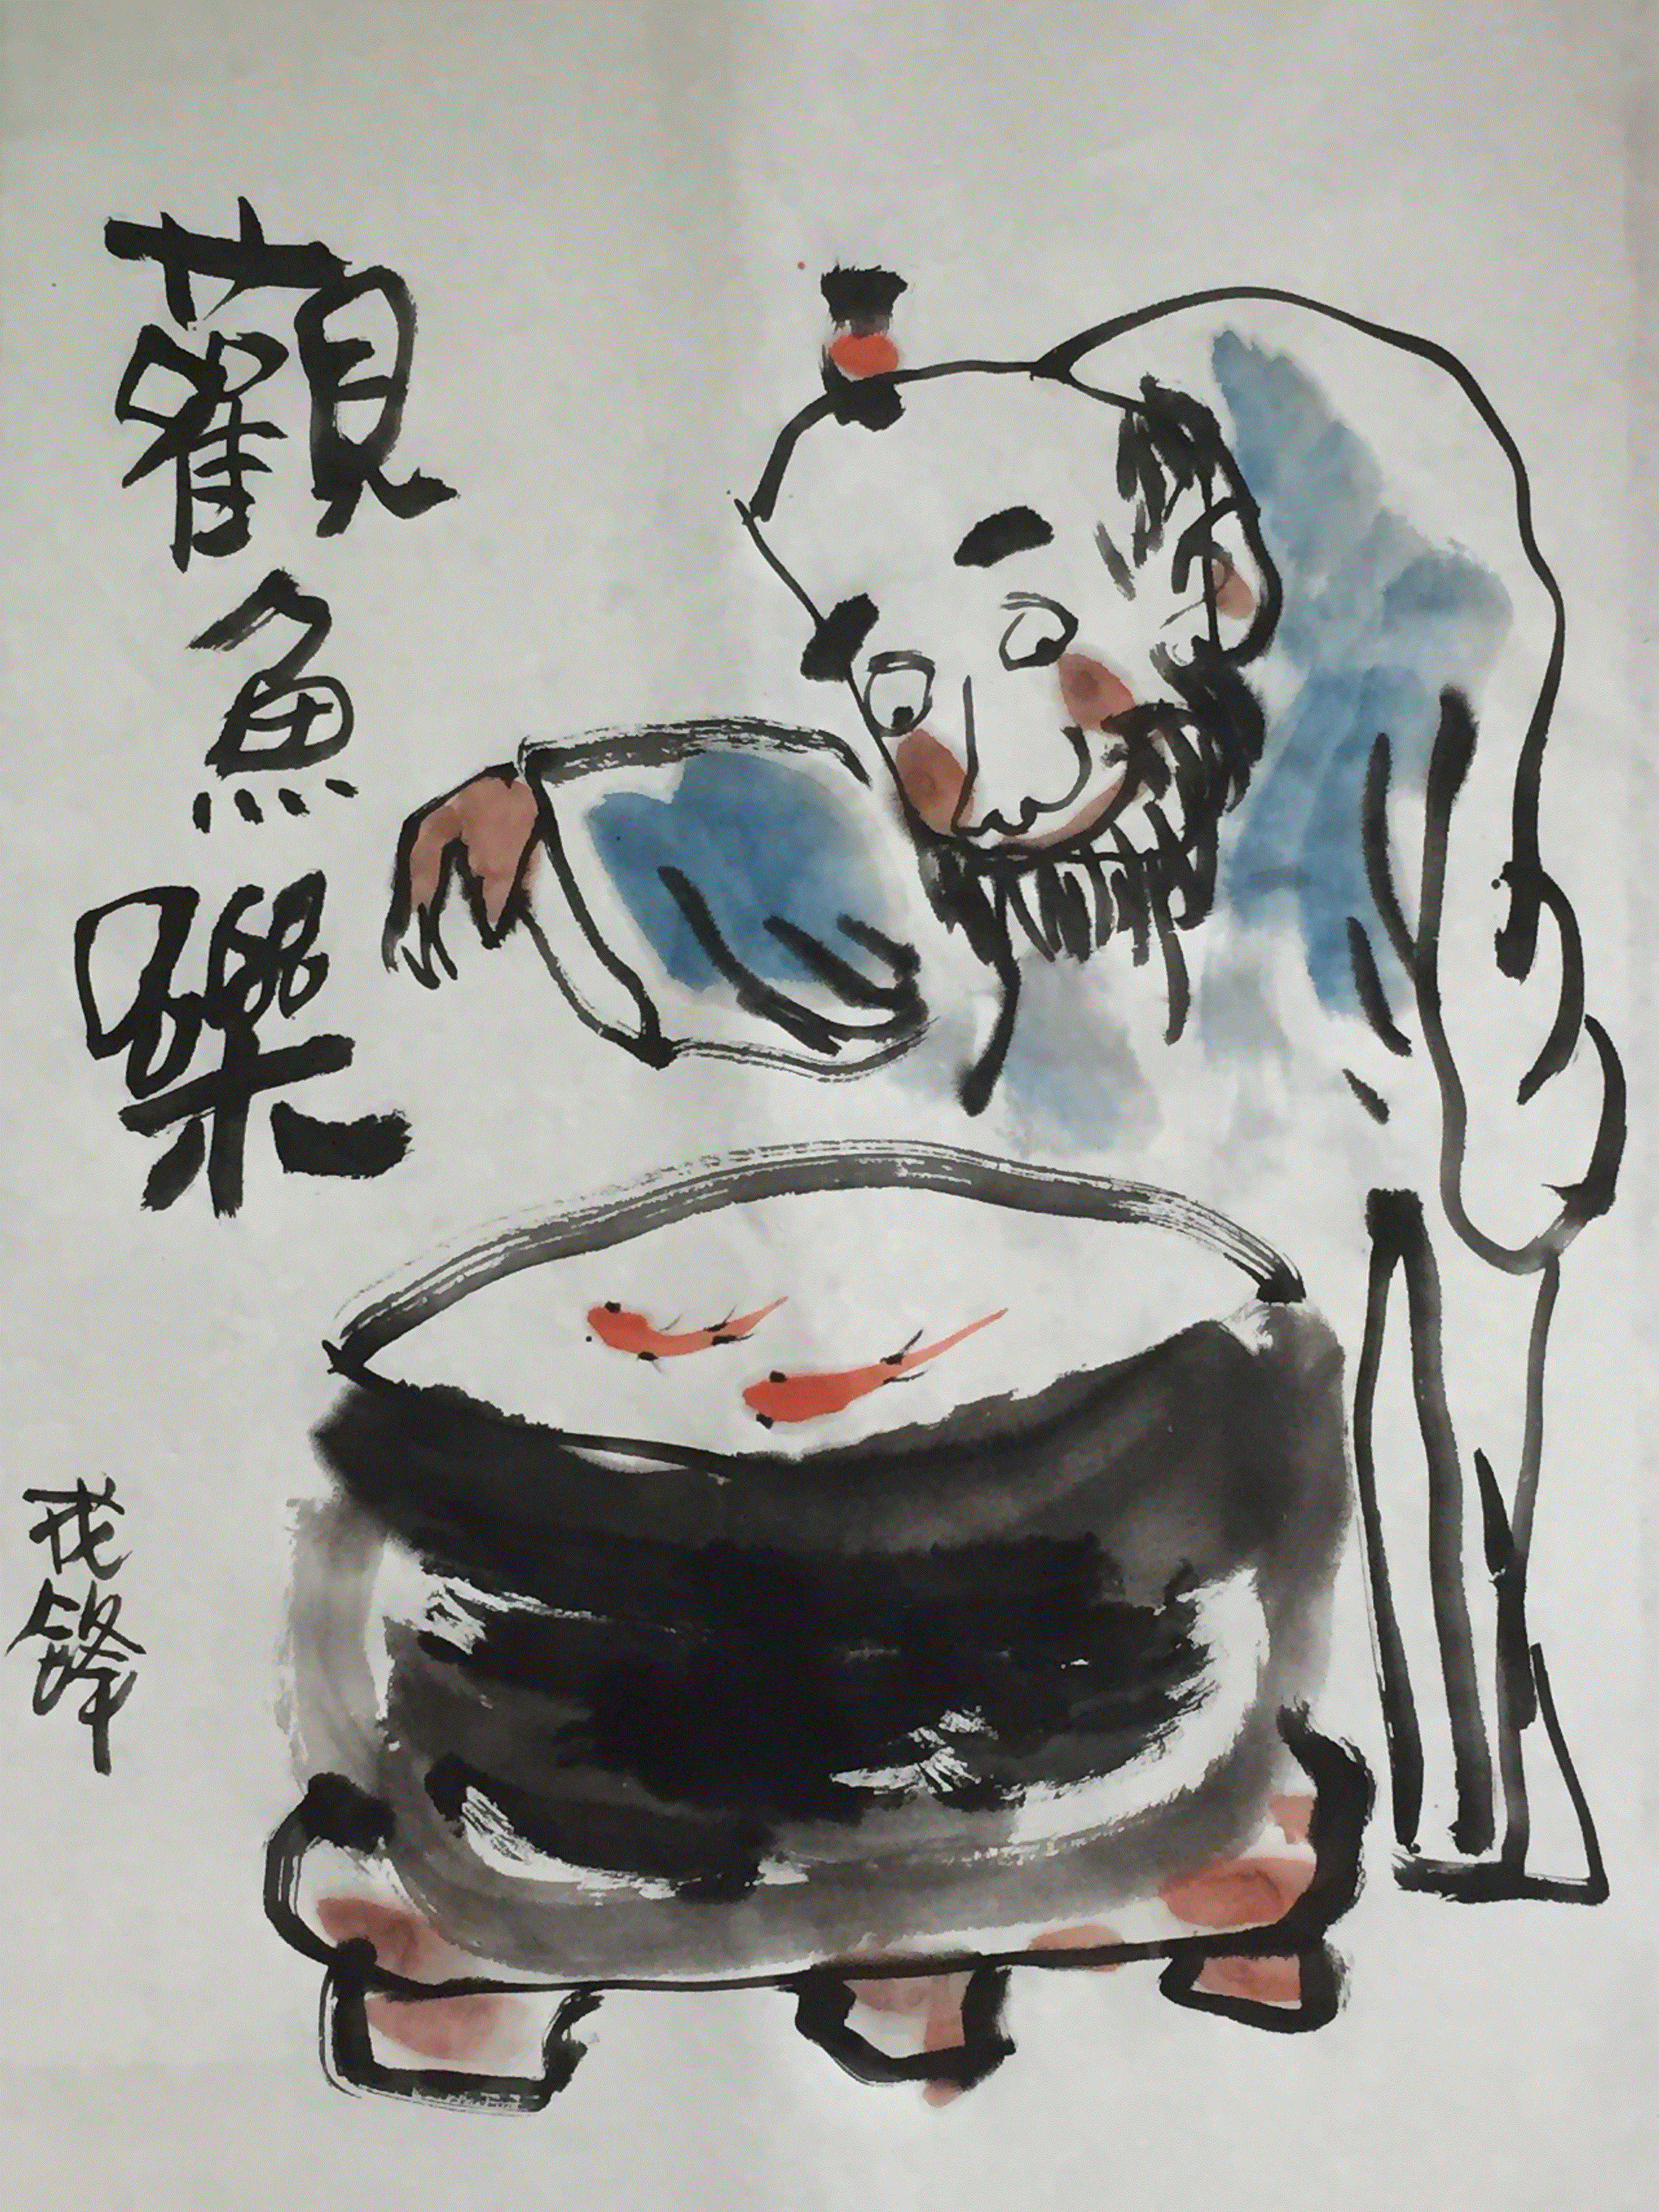 觀魚樂
鋒